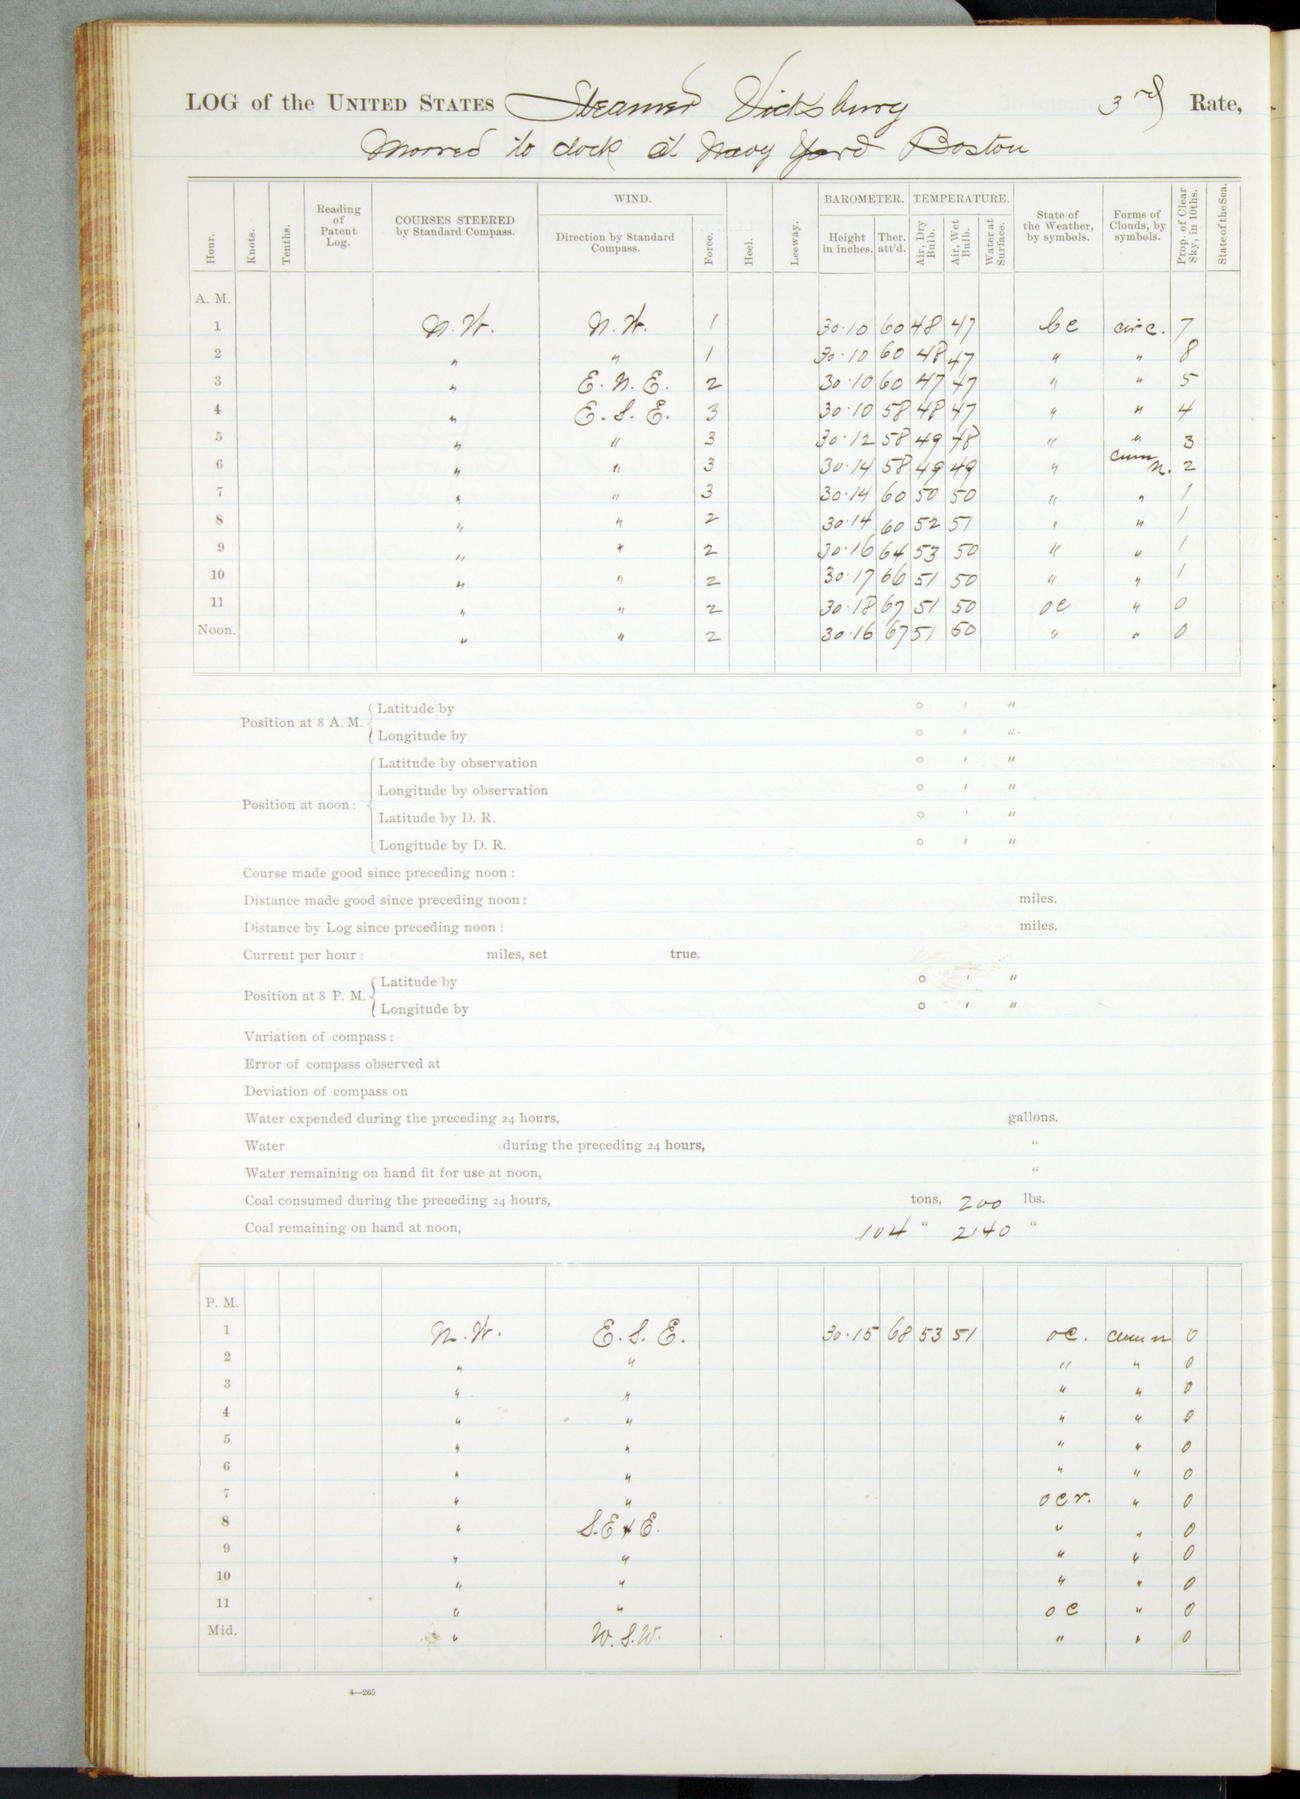 LOG of the UNITED STATES Steamer Vicksburg 3rd Rate,
Moored to dock at Navy Yard Boston
Hour. Knots. Tenths. Reading of Patent Log. COURSES STEERED by Standard Compass. WIND. Direction by Standard Compass. Force. Heel. Leeway. BAROMETER. Height in inches. Ther. att'd. TEMPERATURE. Air, Dry Bulb. Air, Wet Bulb. Water at Surface. State of the Weather, by symbols. Forms of Clouds, by symbols. Prop. of Clear Sky, in 10ths. State of the Sea.
A. M.
1 N.W. N.W. 1 30.10 60 48 47 bc cir c. 7
2 " " 1 30.10 60 48 47 " " 8
3 " E.N.E. 2 30.10 60 47 47 " " 5
4 " E.S.E. 3 30.10 58 48 47 " " 4
5 " " 3 30.12 58 49 48 " " 3
6 " " 3 30.14 58 49 49 " cum n. 2
7 " " 3 30.14 60 50 50 " " 1
8 " " 2 30.14 60 52 51 " " 1
9 " " 2 30.16 64 53 50 " " 1
10 " " 2 30.17 66 51 50 " " 1
11 " " 2 30.18 67 51 50 oc " 0
Noon. " " 2 30.16 67 51 50 " " 0
Position at 8 A. M. Latitude by ° ' "
Longitude by ° ' "
Position at noon: Latitude by observation ° ' "
Longitude by observation ° ' "
Latitude by D. R. ° ' "
Longitude by D. R. ° ' "
Course made good since preceding noon:
Distance made good since preceding noon: miles.
Distance by Log since preceding noon: miles.
Current per hour: miles, set true.
Position at 8 P. M. Latitude by ° ' "
Longitude by ° ' "
Variation of compass:
Error of compass observed at
Deviation of compass on
Water expended during the preceding 24 hours, gallons.
Water during the preceding 24 hours, "
Water remaining on hand fit for use at noon, "
Coal consumed during the preceding 24 hours, tons, 200 lbs.
Coal remaining on hand at noon, 104 " 2140 "
P. M.
1 N.W. E.S.E. 30.15 68 53 51 oc. cum n 0
2 " " " " 0
3 " " " " 0
4 " " " " 0
5 " " " " 0
6 " " " " 0
7 " " ocr. " 0
8 " S.E x E. " " 0
9 " " " " 0
10 " " " " 0
11 " " oc " 0
Mid. " W.S.W. " " 0
4—265